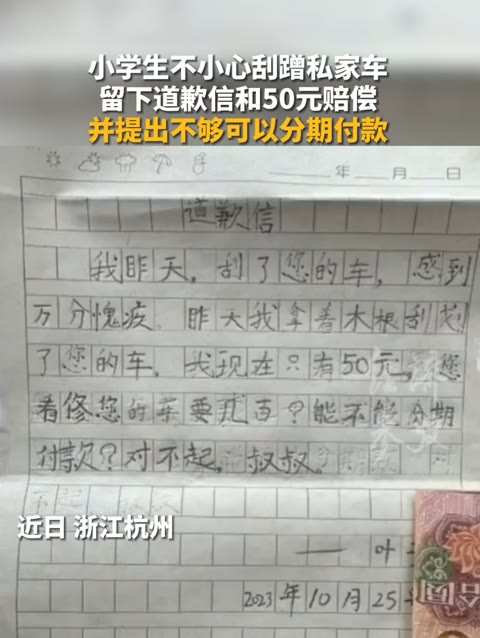 小学生不小心刮蹭私家车
留下道歉信和50元赔偿
并提出不够可以分期付款
年 月 日
道歉信
我昨天,刮了您的车,感到
万分愧疚.昨天我拿着木棍刮划
了您的车,我现在只有50元,您
看修您的车要几百?能不能分期
付款?对不起,叔叔.
近日 浙江杭州
—— 叶
2023年10月25